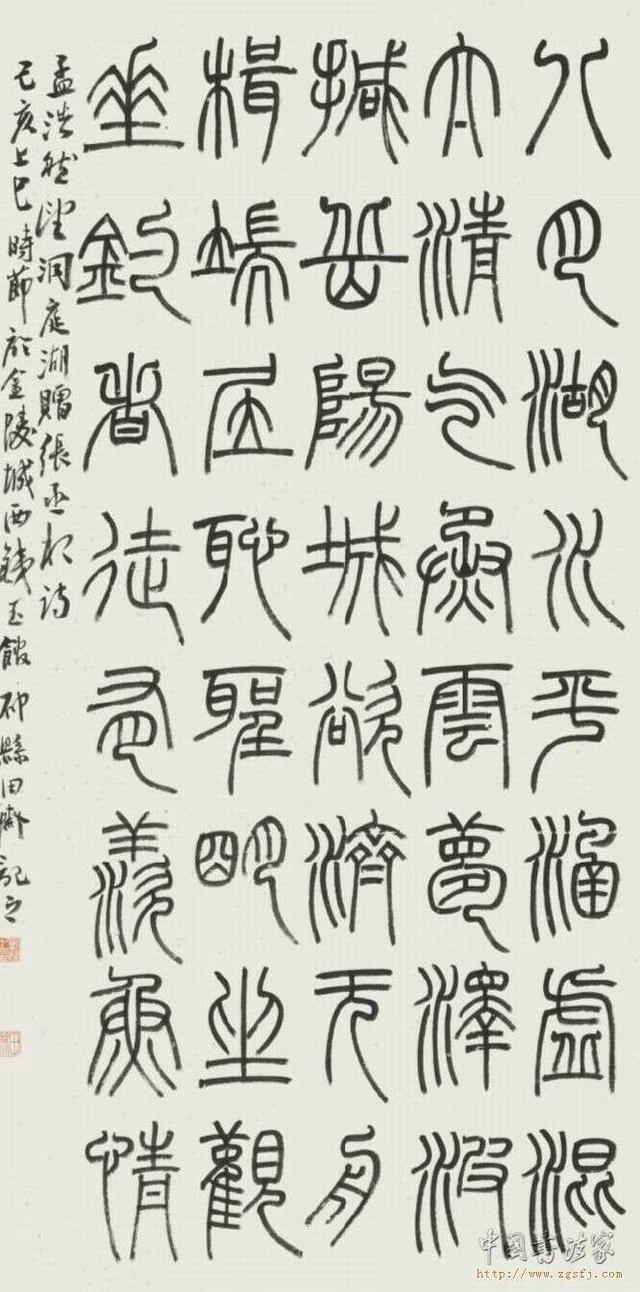 八月湖水平涵虛混
太清气蒸雲夢澤波
撼岳陽城欲濟无舟
楫端居恥聖明坐觀
垂釣者徒有羨魚情
孟浩然望洞庭湖贈張丞相詩
己亥上巳時節於金陵城西鐵玉館 縣田 記之
中國書法家
http://www.zgsfj.com